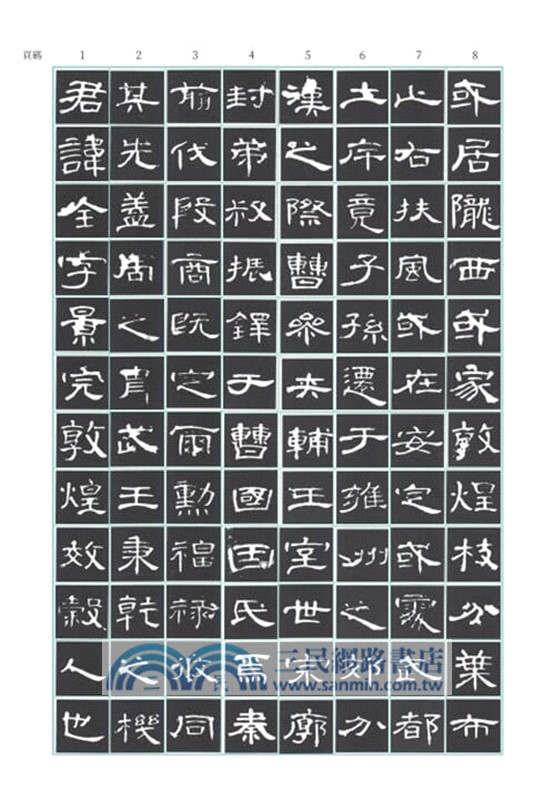 頁碼 1 2 3 4 5 6 7 8
君諱全字景完敦煌效穀人也
其先蓋周之胄武王秉乾之機
翦伐殷商既定爾勳福祿攸同
封弟叔振鐸于曹國因氏焉秦
漢之際曹參夾輔王室世宗廓
土斥竟子孫遷于雍州之郊分
止右扶風或在安定或處武都
或居隴西或家敦煌枝分葉布
三民網路書店
www.sanmin.com.tw